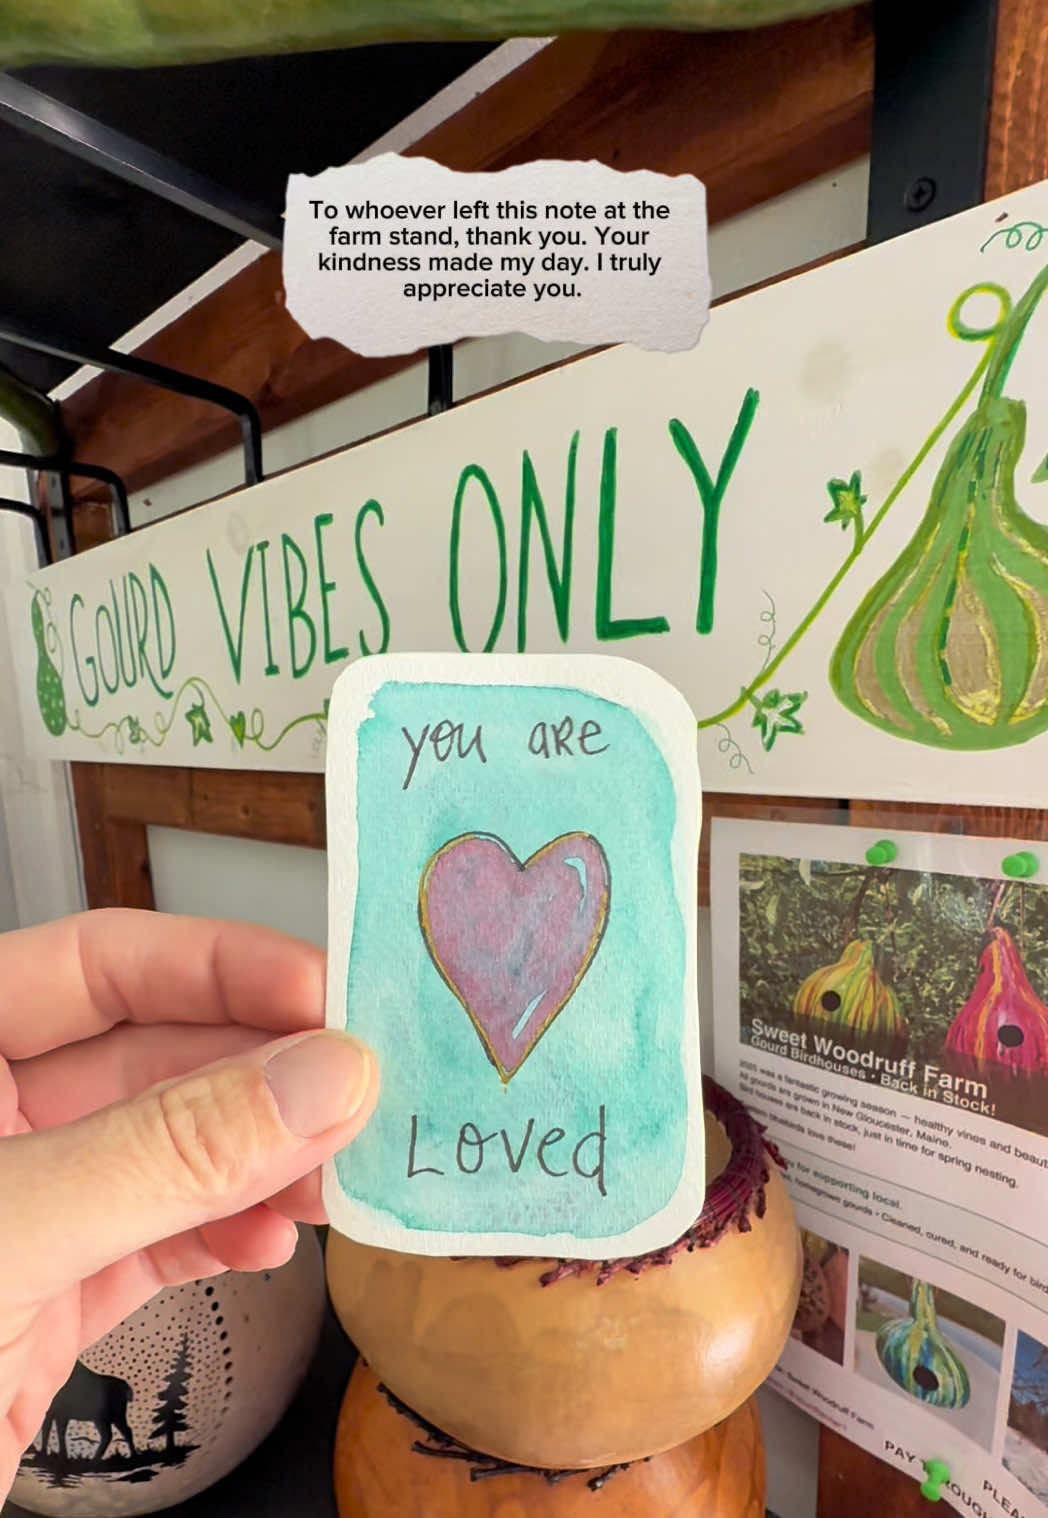 To whoever left this note at the
farm stand, thank you. Your
kindness made my day. I truly
appreciate you.
GOURD VIBES ONLY
you are
Loved
Sweet Woodruff Farm
Gourd Birdhouses • Back in Stock!
2025 was a fantastic growing season — healthy vines and
All gourds are grown in New Gloucester, Maine.
Bird houses are back in stock, just in time for spring nesting.
bluebirds love these!
for supporting local.
homegrown gourds • Cleaned, cured, and ready for
Sweet Woodruff Farm
PAY